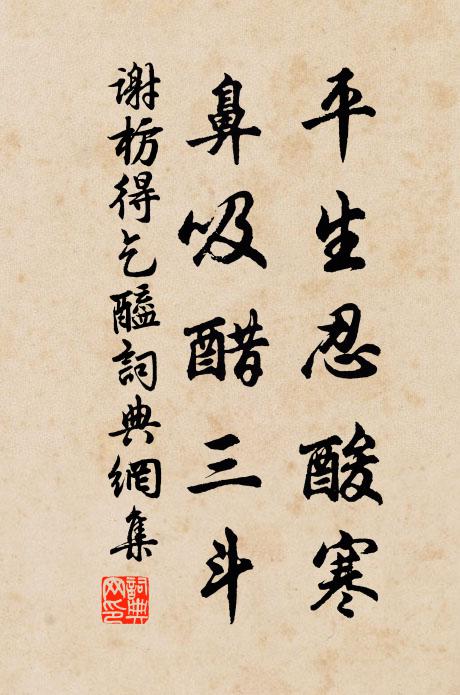 平生忍酸寒
鼻吸醋三斗
谢枋得乞醯詞典網集
詞典
网印